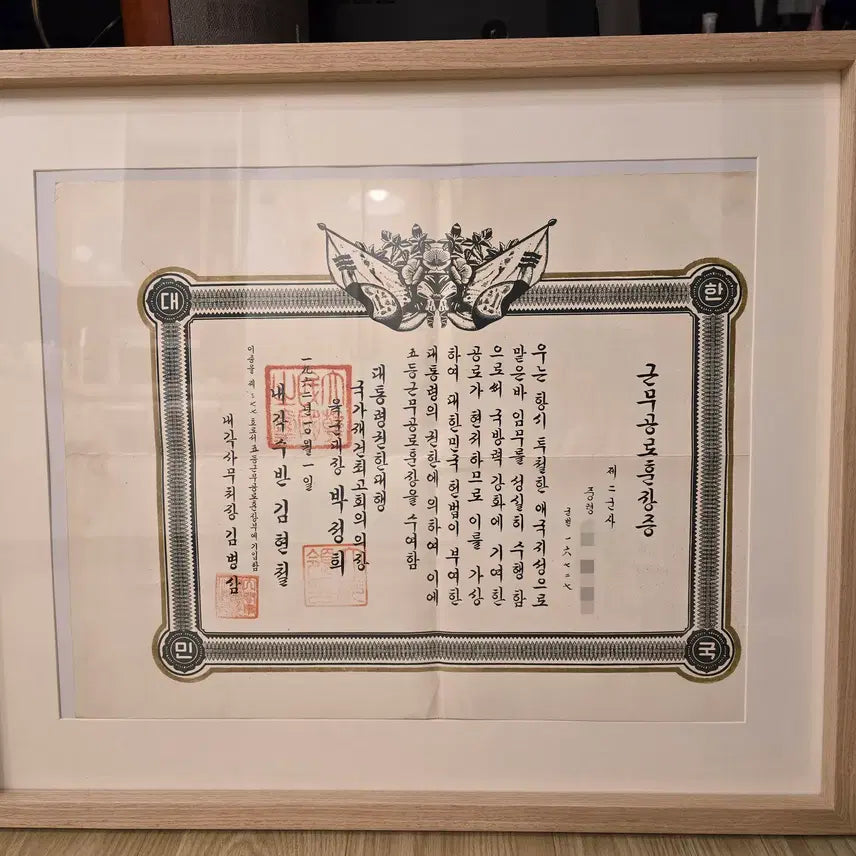 대 한 민 국
근무공로훈장증
제二군사
중령
군번
우는 항시 투철한 애국지성으로
맡은바 임무를 성실히 수행 함
으로써 국방력 강화에 기여 한
공로가 현저하므로 이를 가상
하여 대한민국 헌법이 부여한
대통령의 권한에 의하여 이에
근무공로훈장을 수여함
대통령권한대행
국가재건최고회의의장
육군대장 박정희
一九六二년 一〇월 一일
내각수반 김현철
이증을 제 호로서 근무공로훈장부에 기입함
내각사무처장 김병삼